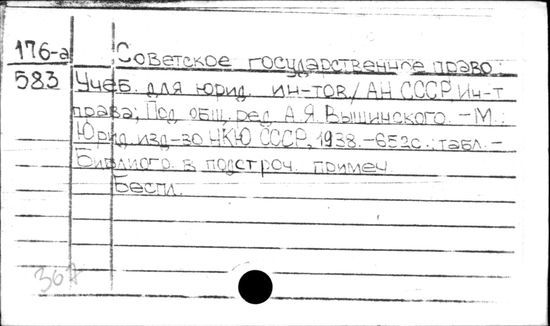 176-а Советское государственное право:
583 Учеб. для юрид. ин-тов/АН СССР, Ин-т
права; Под общ. ред. А.Я. Вышинского. -М.:
Юрид. изд-во НКЮ СССР, 1938.-652с.: табл.-
Библиогр. в подстроч. примеч.
Беспл.
367